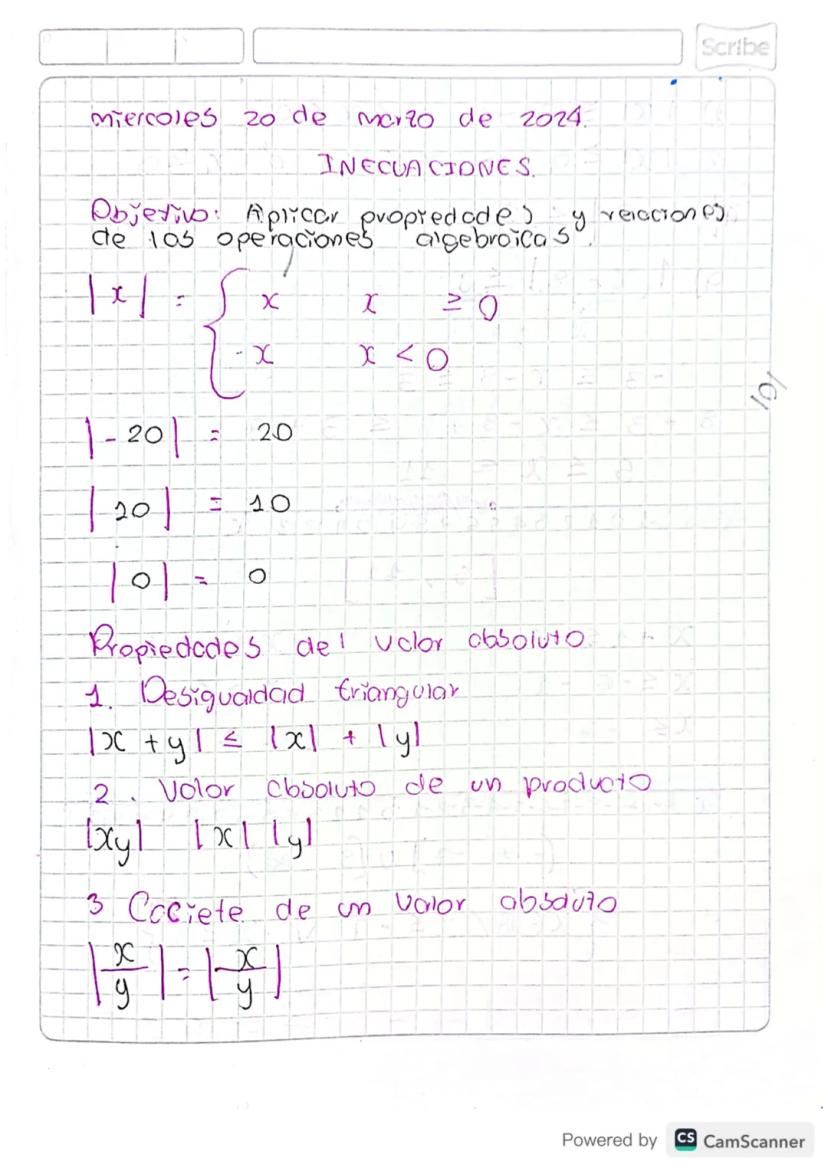 Scribe
miercoles 20 de marzo de 2024.
INECUACIONES.
Objetivo: Aplicar propiedades y relaciones
de las operaciones algebraicas.
|x| = { x    x ≥ 0
-x    x < 0
|-20| = 20
|20| = 10
|0| = 0
Propiedades del valor absoluto
1. Desigualdad triangular
|x + y| ≤ |x| + |y|
2. Valor absoluto de un producto
|xy|   |x| |y|
3 Cociete de un valor absoluto
|x/y| = |x/y|
Powered by CS CamScanner